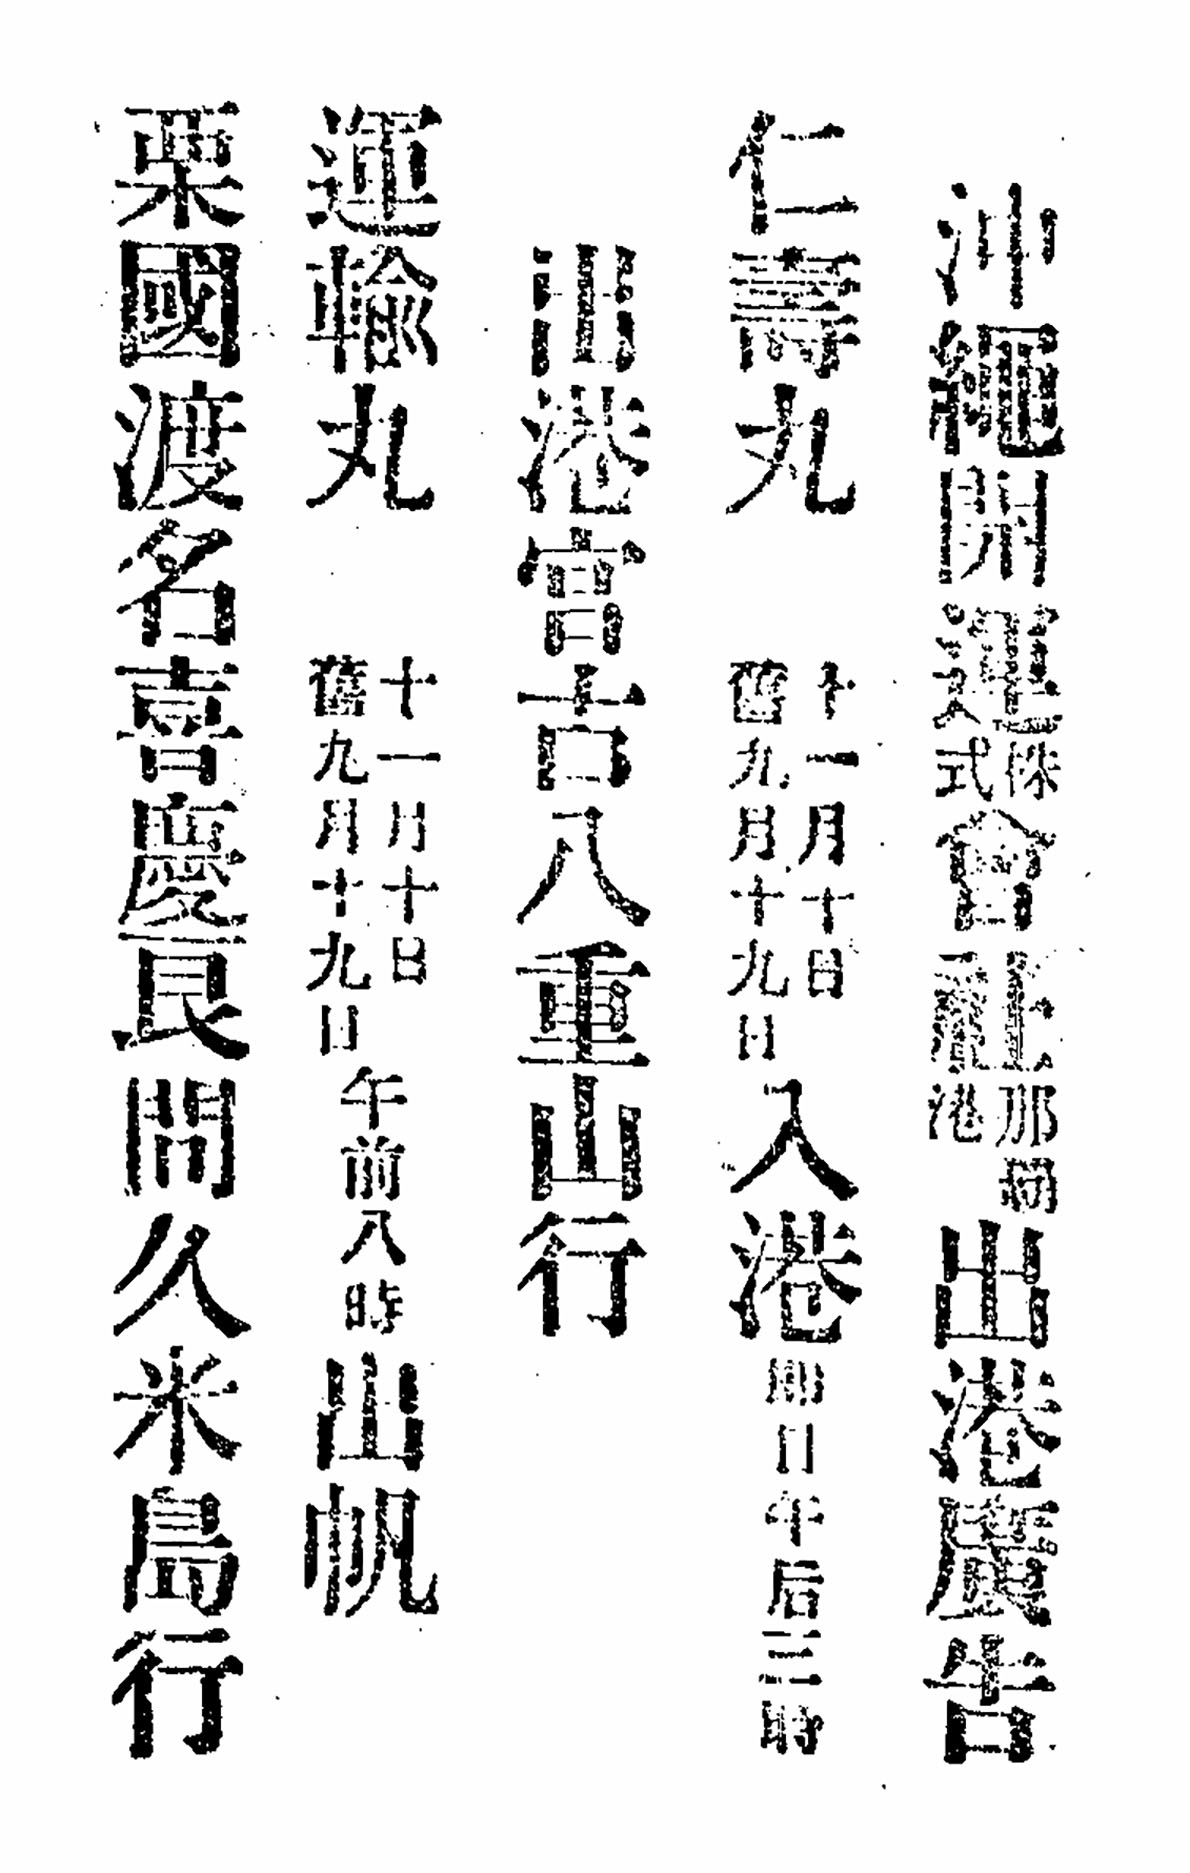 沖繩開運株式會 那覇港出港廣告
仁壽丸 十一月十日 舊九月十九日 入港 即日午后三時
出港宮古八重山行
運輸丸 十一月十日 舊九月十九日 午前八時出帆
粟國渡名喜慶良間久米島行